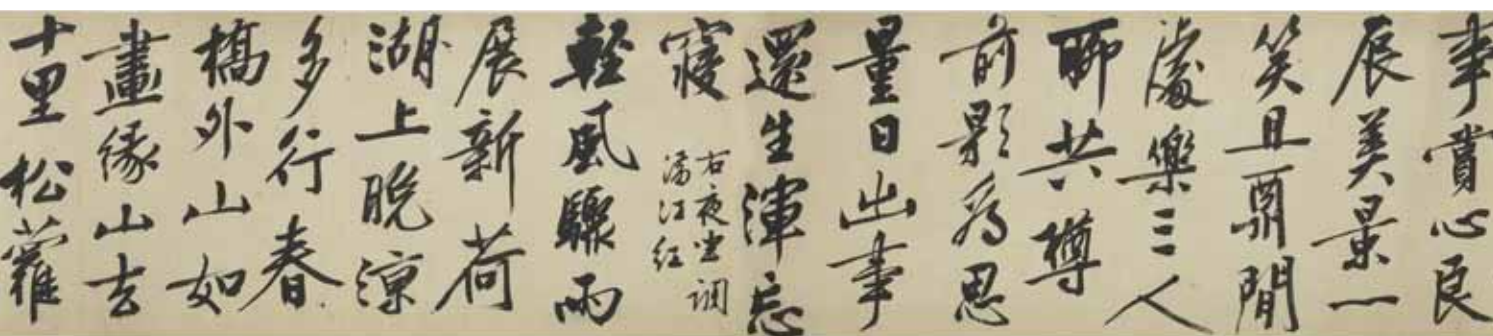 事賞心良
辰美景一
笑且閒
處樂三人
聊共樽
前影為思
量日出事
還生渾忘
寢
右夜坐調
滿江紅
輕風驟雨
展新荷
湖上晚涼
多行春
橋外山如
畫緣山去
十里松蘿